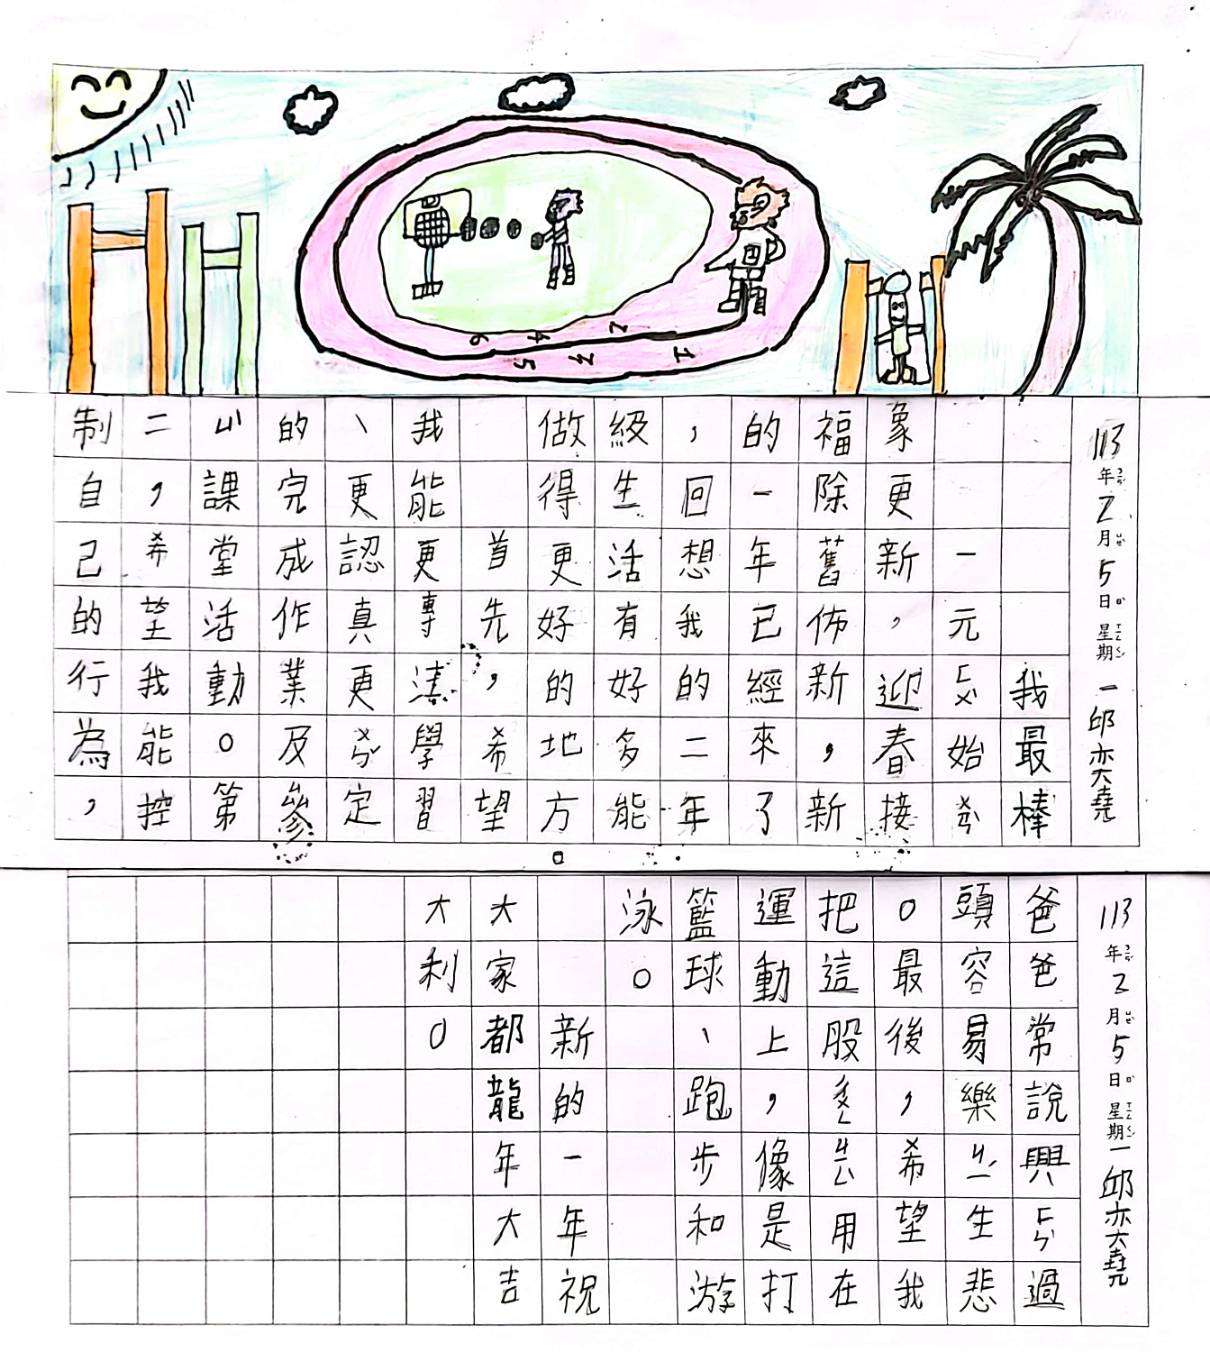 1
2
3
4
5
6
113年2月5日星期一 邱奕堯
我最棒
一元ㄈㄨˋ始ㄨㄢˋ
象更新，迎春接
福除舊佈新，新
的一年已經來了
，回想我的二年
級生活有好多能
做得更好的地方。
首先，希望
我能更專學習
、更認真更ㄨㄣˇ定
的完成作業及參
ㄩˋ課堂活動。第
二，希望我能控
制自己的行為，
113年2月5日星期一 邱奕堯
爸爸常說興ㄈㄣˋ過
頭容易樂ㄐㄧˊ生悲
。最後，希望我
把這股用在
運動上，像是打
籃球、跑步和游
泳。
新的一年祝
大家都龍年大吉
大利。